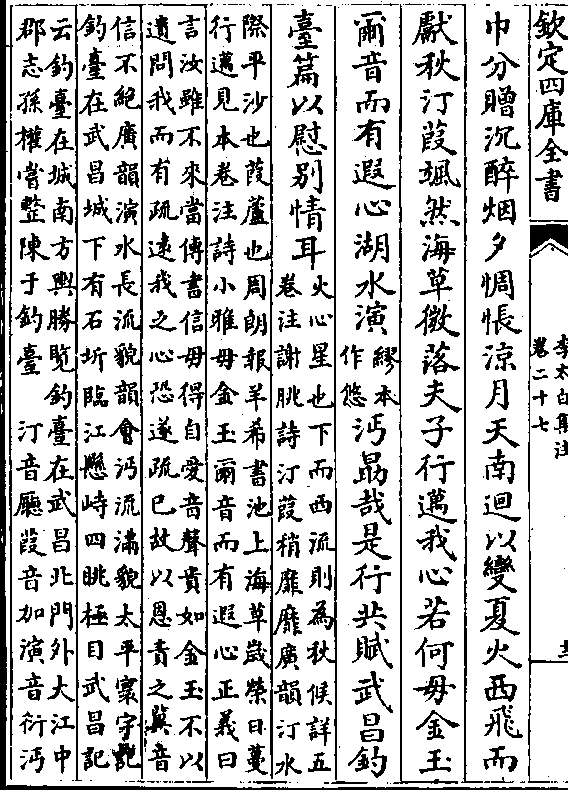 欽定四庫全書
李太白集注
卷二十七
巾分贈沉醉烟夕惆悵涼月天南迴以變夏火西飛而
獻秋汀葭颯然海草微落夫子行邁我心若何毋金玉
爾音而有遐心湖水演
繆本
作悠
沔勗哉是行共賦武昌釣
臺篇以慰別情耳
火心星也下而西流則為秋候詳五
卷注謝朓詩汀葭稍靡靡廣韻汀水
際平沙也葭蘆也周朗報羊希書池上海草歲榮日蔓
行邁見本卷注詩小雅毋金玉爾音而有遐心正義曰
言汝雖不來當傳書信毋得自愛音聲貴如金玉不以
遺問我而有疏遠我之心恐遂疏已故以恩責之冀音
信不絶廣韻演水長流貌韻會沔流滿貌太平寰宇記
釣臺在武昌城下有石圻臨江懸峙四眺極目武昌記
云釣臺在城南方輿勝覽釣臺在武昌北門外大江中
郡志孫權嘗整陳于釣臺 汀音廳葭音加演音衍沔